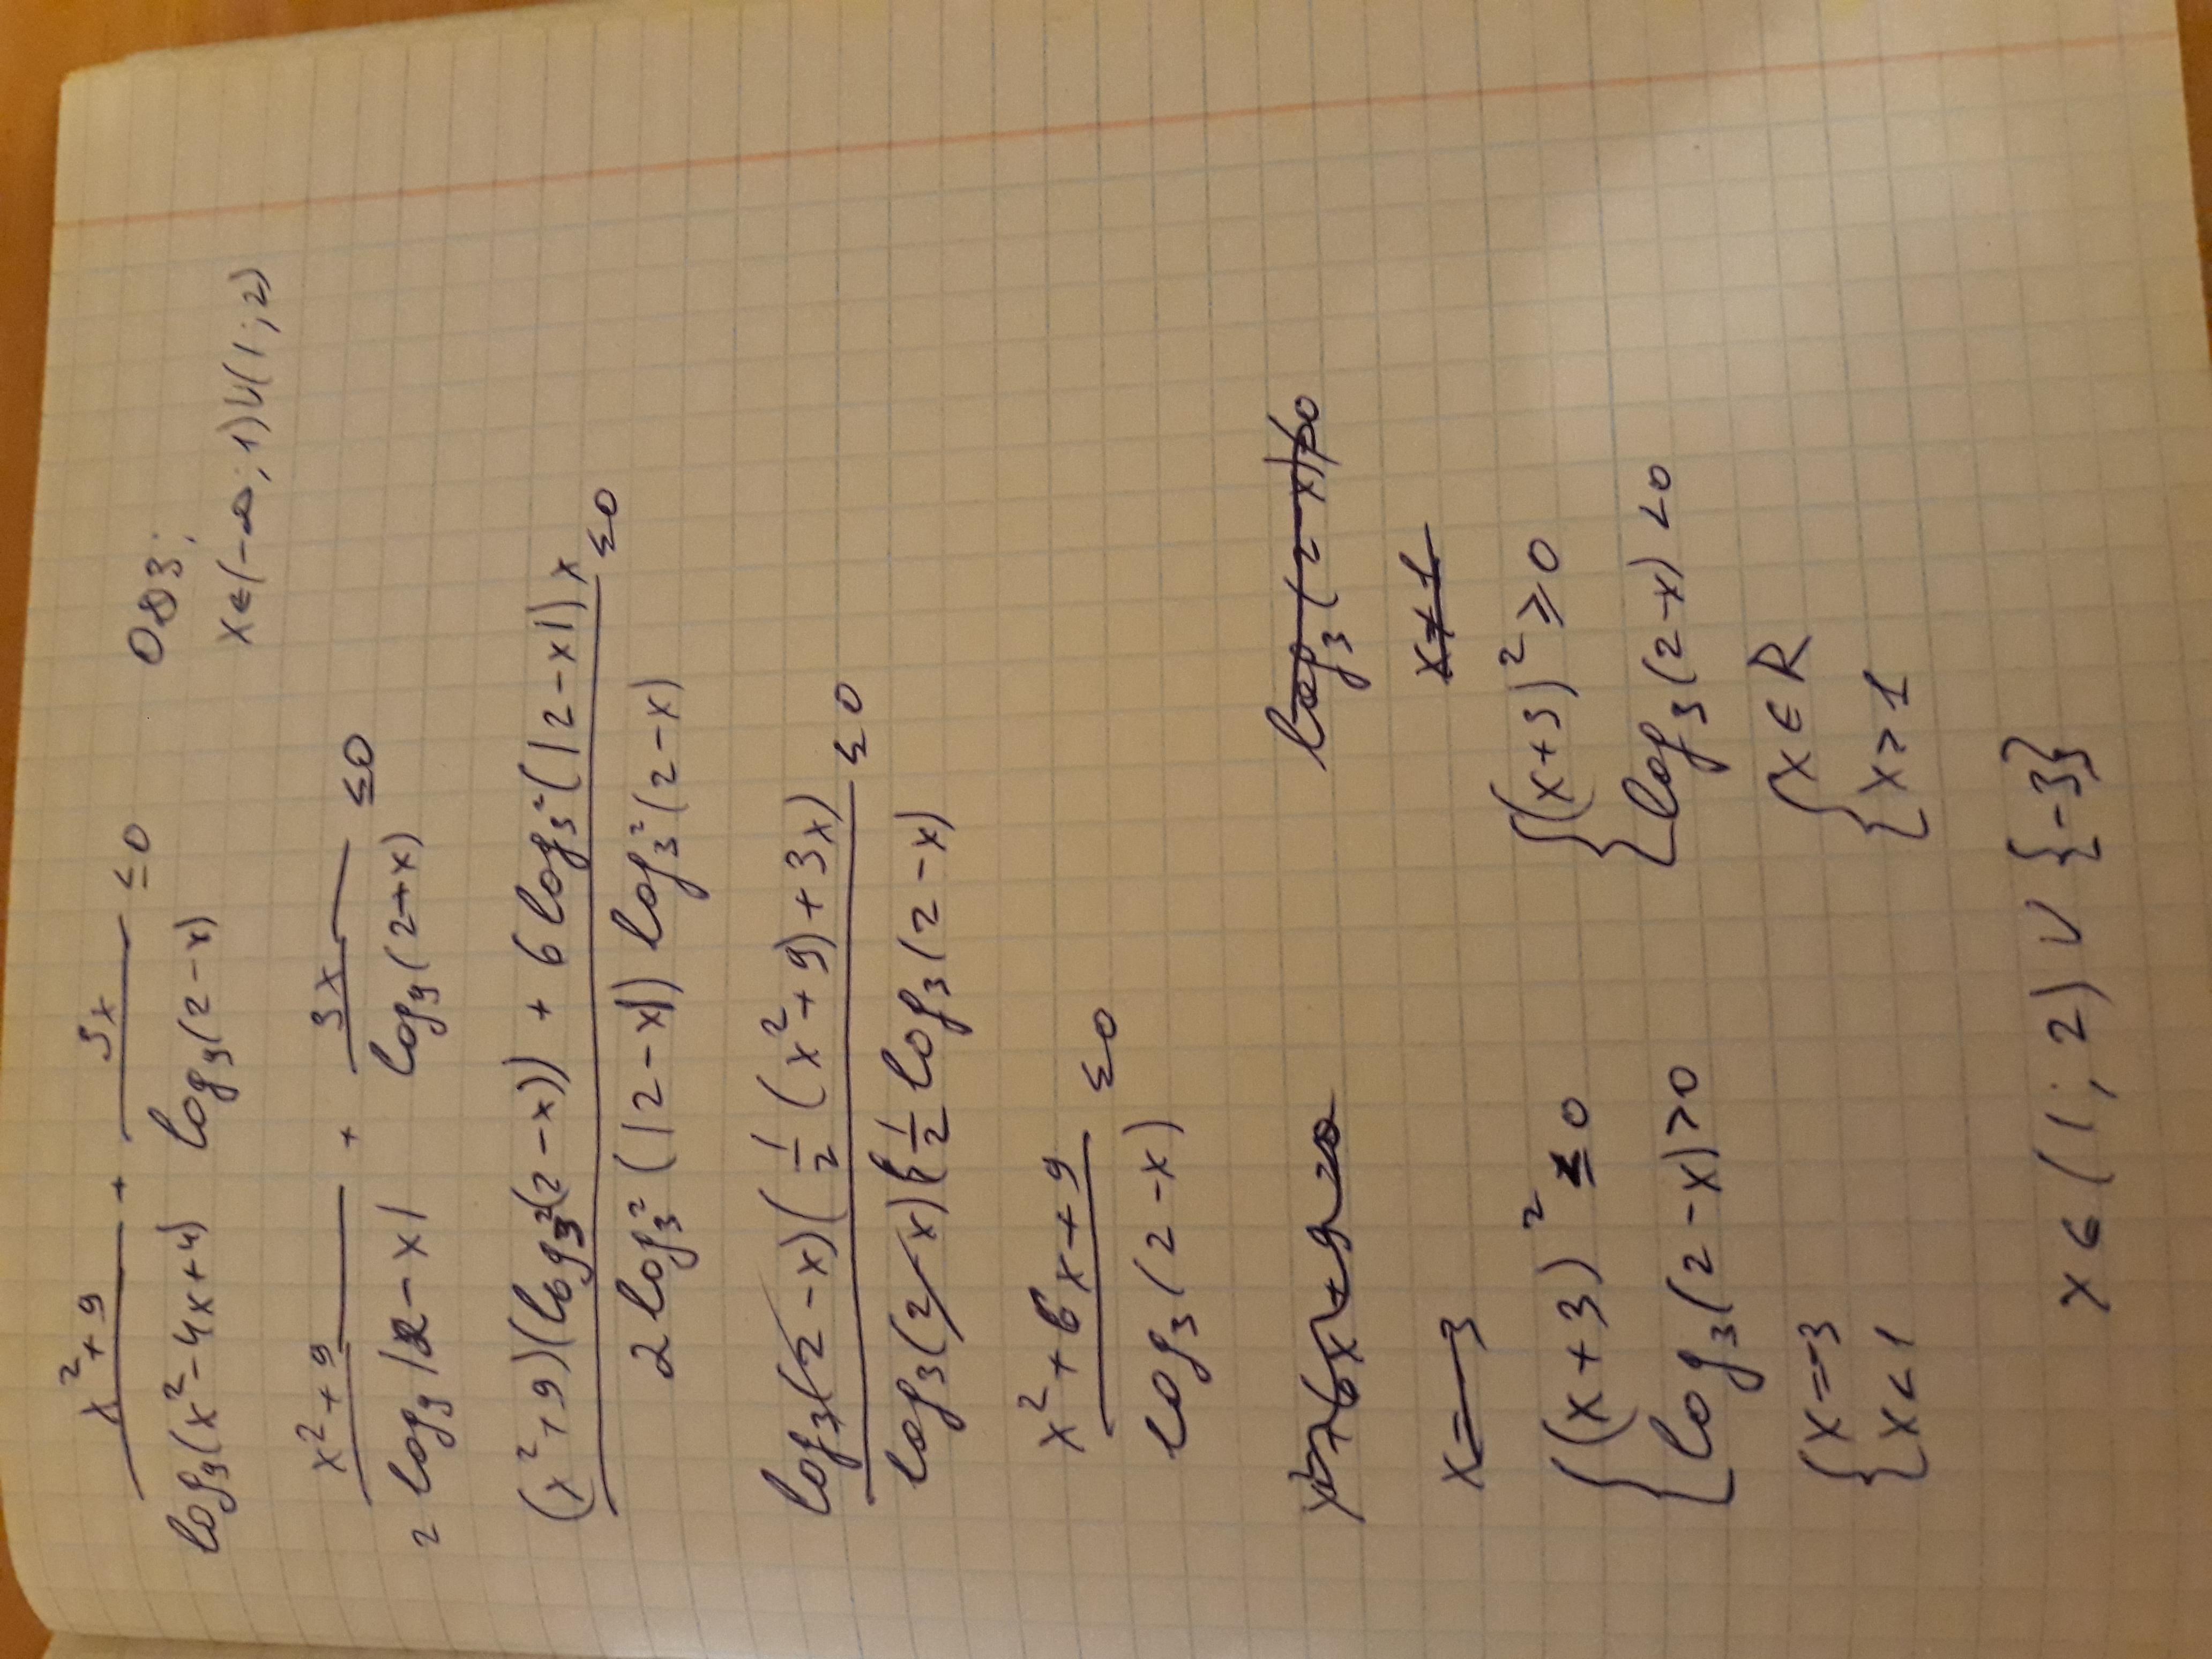 x²+9 / log₉(x²-4x+4) + 3x / log₉(2-x) ≤0
ОДЗ:
x∈(-∞;1)∪(1;2)
x²+9 / 2log₉|2-x| + 3x / log₉(2-x) ≤0
(x²+9)(log₃²(2-x)) + 6log₃²(|2-x|)x / 2log₃²(|2-x|) log₃²(2-x) ≤0
log₃(2-x)(½(x²+9)+3x) / log₃(2-x)½log₃(2-x) ≤0
x²+6x+9 / log₃(2-x) ≤0
x²+6x+9=0
log₃(2-x)≠0
x=-3
x≠1
{(x+3)²≤0
{log₃(2-x)>0
{(x+3)²≥0
{log₃(2-x)<0
{x=-3
{x<1
{x∈R
{x>1
x∈(1;2)∪{-3}